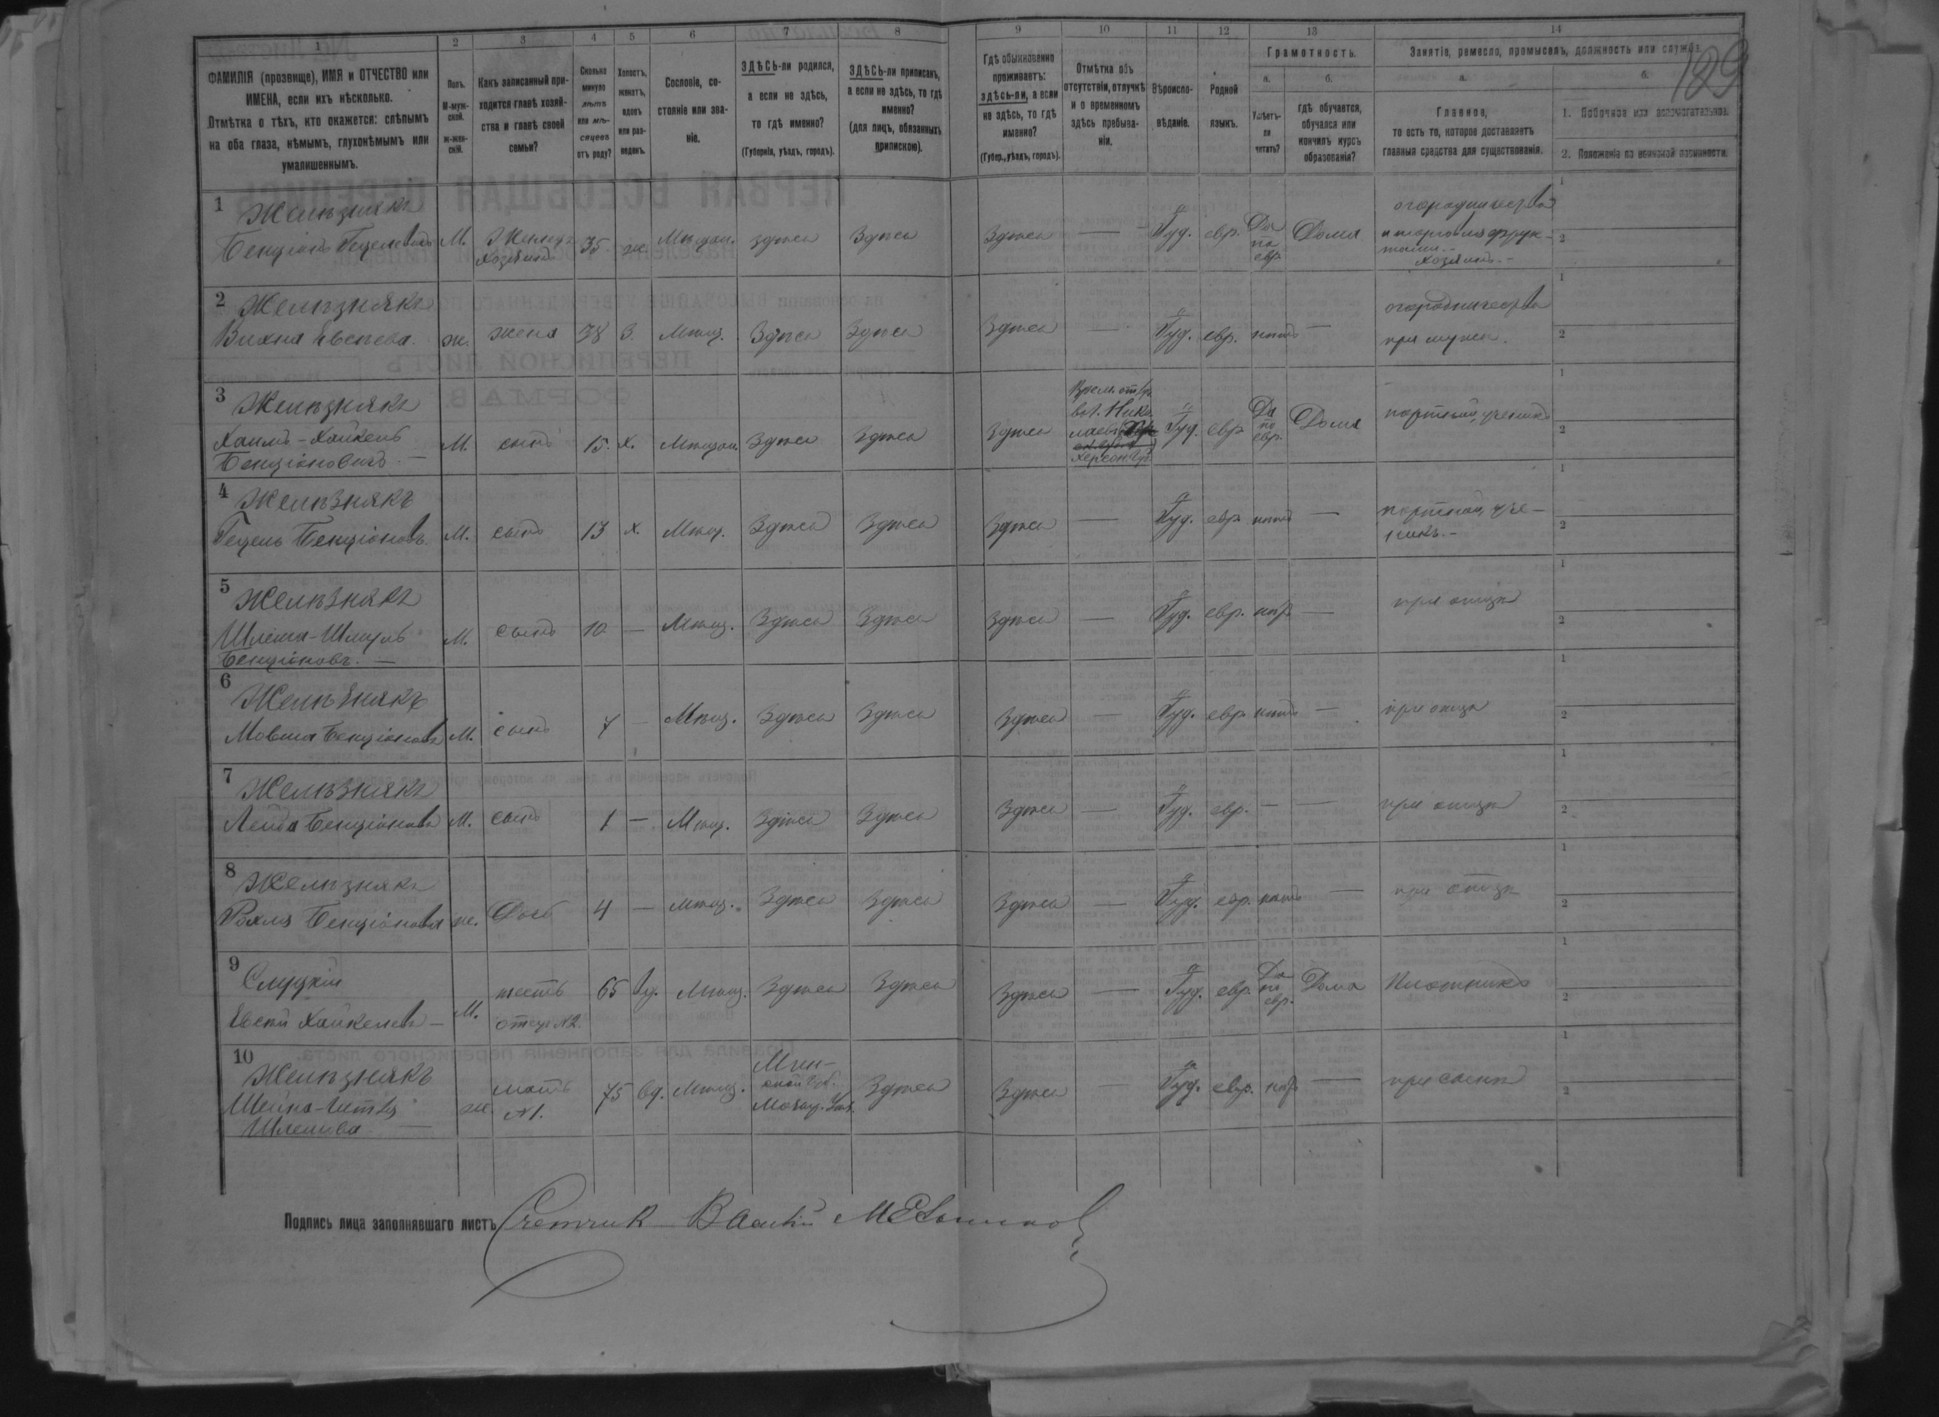 129
1 2 3 4 5 6 7 8 9 10 11 12 13 14
ФАМИЛІЯ (прозвище), ИМЯ и ОТЧЕСТВО или
ИМЕНА, если ихъ нѣсколько.
Отмѣтка о тѣхъ, кто окажется: слѣпымъ
на оба глаза, нѣмымъ, глухонѣмымъ или
умалишеннымъ.
Полъ.
М-муж-
ской.
ж-жен-
скій.
Какъ записанный при-
ходится главѣ хозяй-
ства и главѣ своей
семьи?
Сколько
минуло
лѣтъ
или мѣ-
сяцевъ
отъ роду?
Холостъ,
женатъ,
вдовъ
или раз-
веденъ.
Сословіе, со-
стояніе или зва-
ніе.
ЗДѢСЬ-ли родился,
а если не здѣсь,
то гдѣ именно?
(Губернія, уѣздъ, городъ).
ЗДѢСЬ-ли приписанъ,
а если не здѣсь, то гдѣ
именно?
(для лицъ, обязанныхъ
припискою).
Гдѣ обыкновенно
проживаетъ:
здѣсь-ли, а если
не здѣсь, то гдѣ
именно?
(Губер., уѣздъ, городъ).
Отмѣтка объ
отсутствіи, отлучкѣ
и о временномъ
здѣсь пребыва-
ніи.
Вѣроиспо-
вѣданіе.
Родной
языкъ.
Грамотность.
а.
Умѣетъ-
ли
читать?
б.
гдѣ обучается,
обучался или
кончилъ курсъ
образованія?
Занятіе, ремесло, промыселъ, должность или служба.
а.
Главное,
то есть то, которое доставляетъ
главныя средства для существованія.
б.
1. Побочное или вспомогательное.
2. Положеніе по воинской повинности.
1 Желѣзнякъ
Бенціонъ Гецелевъ М. Хозяинъ 35 ж. Мѣщан. здѣсь Здѣсь Здѣсь — Іуд. евр. Да по евр. Дома огородничество
и торговля фрук-
тами.-
хозяинъ.-
2 Желѣзнякъ
ж. жена 38 З. Мѣщ. Здѣсь Здѣсь Здѣсь — Іуд. евр. нѣтъ — огородничество
при мужѣ.
3 Желѣзнякъ
Хаимъ-Хайкель М. сынъ 15. х. Мѣщан. Здѣсь Здѣсь Здѣсь Іуд. евр. Да по евр. Дома портной, ученикъ
Бенціоновичъ —
Херсон. губ.
4 Желѣзнякъ
Гецель Бенціоновъ. М. сынъ 13 х. Мѣщ. Здѣсь Здѣсь Здѣсь — Іуд. евр. нѣтъ — портной, уче-
никъ.-
5 Желѣзнякъ
Шлёма-Шмуль М. сынъ 10 — Мѣщ. Здѣсь Здѣсь Здѣсь — Іуд. евр. нѣтъ — при отцѣ
Бенціоновъ. —
6 Желѣзнякъ
Мовша Бенціоновъ М. сынъ 7 — Мѣщ. Здѣсь Здѣсь Здѣсь — Іуд. евр. нѣтъ — при отцѣ
7 Желѣзнякъ
Лейба Бенціоновъ М. сынъ 1 — Мѣщ. Здѣсь Здѣсь Здѣсь — Іуд. евр. — — при отцѣ
8 Желѣзнякъ
Рохля Бенціонова ж. дочь 4 — Мѣщ. Здѣсь Здѣсь Здѣсь — Іуд. евр. нѣтъ — при отцѣ
9 Слуцкій
Евсей Хайкелевъ — М. тесть 65 Вд. Мѣщ. Здѣсь Здѣсь Здѣсь — Іуд. евр. Да по евр. Дома Плотникъ
отец №2.
10 Желѣзнякъ
ж. мать №1. 75 вд. Мѣщ. Мин-
ской Губ.
Мозыр. Уѣз. Здѣсь Здѣсь — Іуд. евр. нѣтъ — при сынѣ
Подпись лица заполнявшаго листъ Счетчик Василій